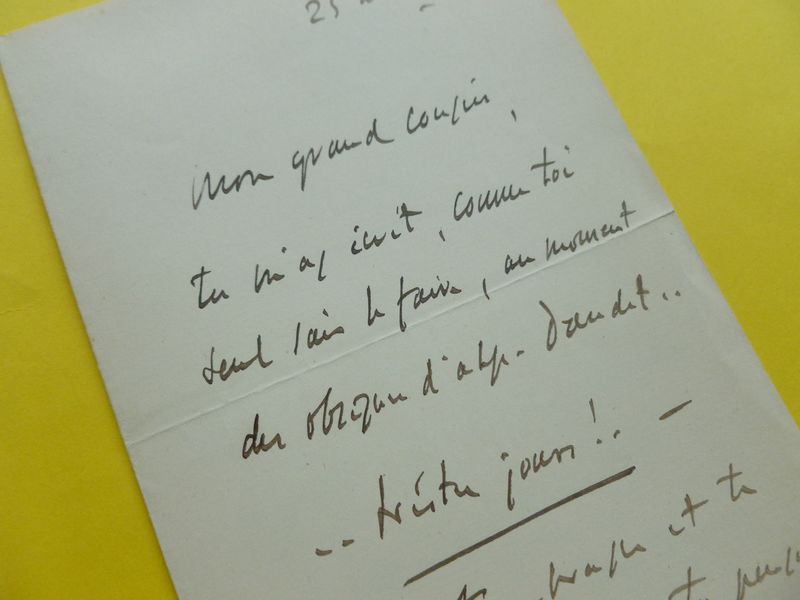 25
Mon grand cousin,
tu m'as écrit, comme toi
seul sais le faire, au moment
des obsèques d'alph. Daudet..
.. tristes jours!.. —
et te